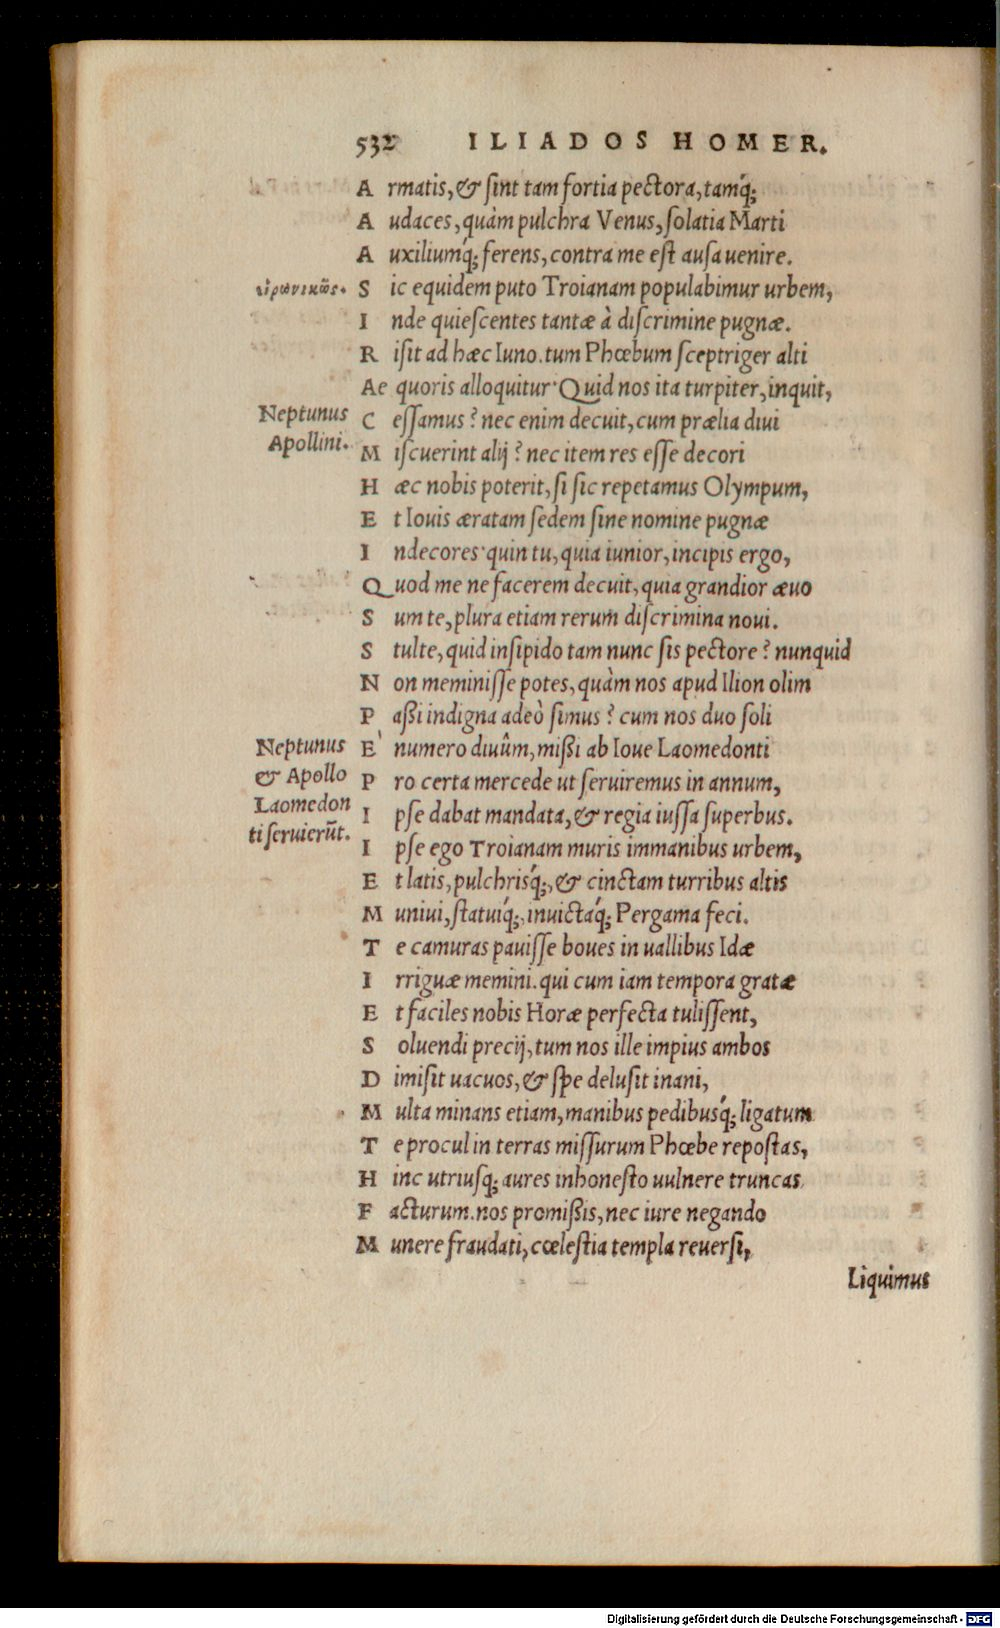 532 ILIADOS HOMER.
Armatis, & sint tam fortia pectora, tamq́;
Audaces, quàm pulchra Venus, solatia Marti
Auxiliumq́; ferens, contra me est ausa uenire.
εἰρωνικῶς.
Sic equidem puto Troianam populabimur urbem,
Inde quiescentes tantæ à discrimine pugnæ.
Risit ad hæc Iuno. tum Phœbum sceptriger alti
Aequoris alloquitur· Quid nos ita turpiter, inquit,
Neptunus
Apollini.
Cessamus? nec enim decuit, cum prælia diui
Miscuerint alij? nec item res esse decori
Hæc nobis poterit, si sic repetamus Olympum,
Et Iouis æratam sedem sine nomine pugnæ
Indecores· quin tu, quia iunior, incipis ergo,
Quod me ne facerem decuit, quia grandior æuo
Sum te, plura etiam rerum discrimina noui.
Stulte, quid insipido tam nunc sis pectore? nunquid
Non meminisse potes, quàm nos apud Ilion olim
Paßi indigna adeò simus? cum nos duo soli
Neptunus
& Apollo
Laomedon
ti seruierūt.
È numero diuûm, mißi ab Ioue Laomedonti
Pro certa mercede ut seruiremus in annum,
Ipse dabat mandata, & regia iussa superbus.
Ipse ego Troianam muris immanibus urbem,
Et latis, pulchrisq́;, & cinctam turribus altis
Muniui, statuiq́;, inuictaq́; Pergama feci.
Te camuras pauisse boues in uallibus Idæ
Irriguæ memini. qui cum iam tempora gratæ
Et faciles nobis Horæ perfecta tulissent,
Soluendi precij, tum nos ille impius ambos
Dimisit uacuos, & spe delusit inani,
Multa minans etiam, manibus pedibusq́; ligatum
Te procul in terras missurum Phœbe repostas,
Hinc utriusq; aures inhonesto uulnere truncas
Facturum. nos promißis, nec iure negando
Munere fraudati, cœlestia templa reuersi,
Liquimus
Digitalisierung gefördert durch die Deutsche Forschungsgemeinschaft - DFG